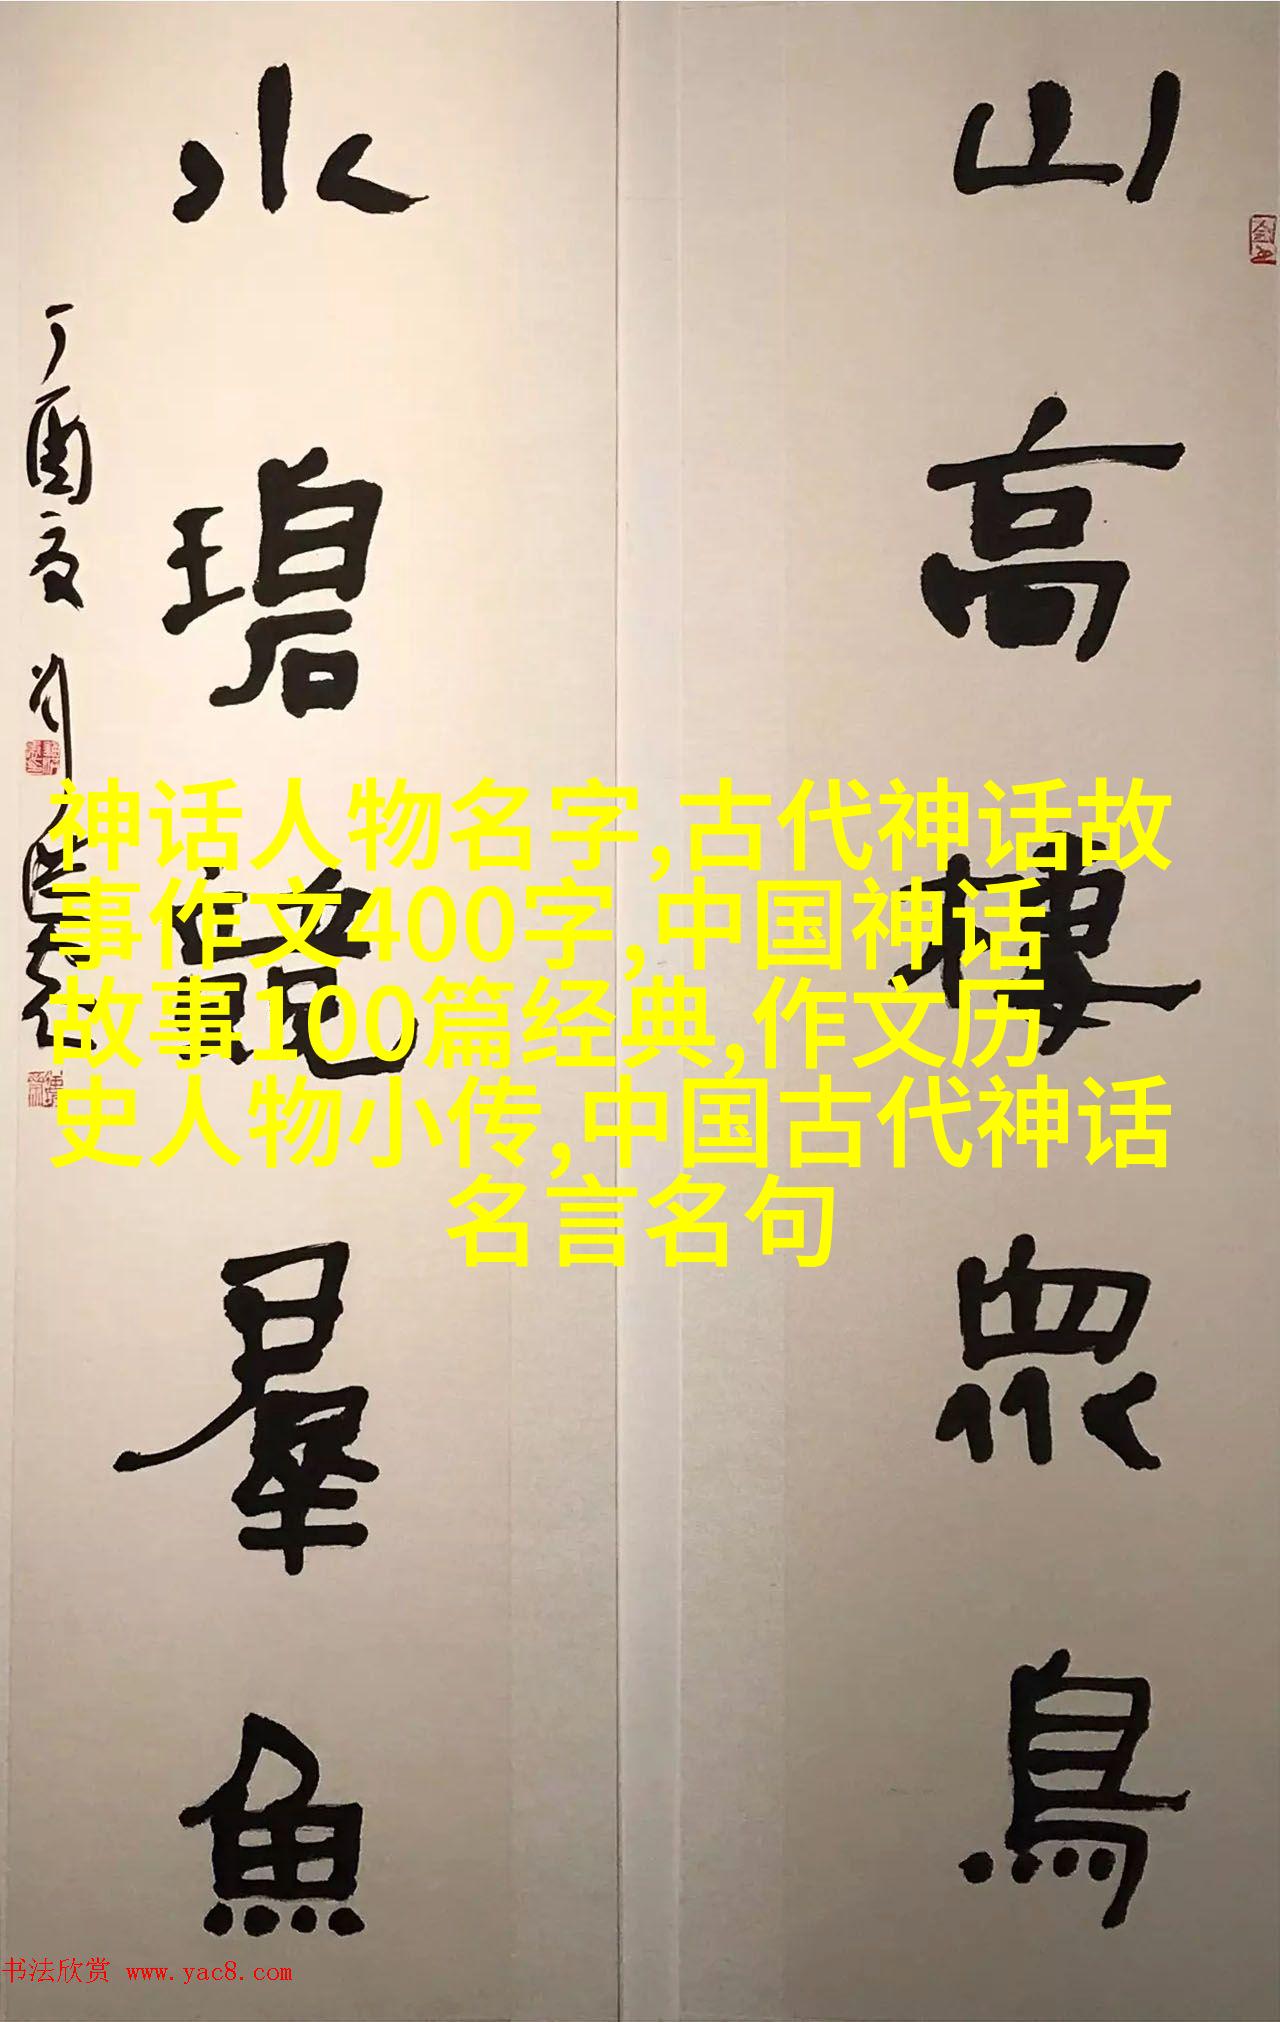 山高棲眾鳥
水碧羣魚
丁酉夏
神话人物名字,古代神话故
事作文400字,中国神话
故事100篇经典,作文历
史人物小传,中国古代神话
名言名句
书法欣赏 www.yac8.com